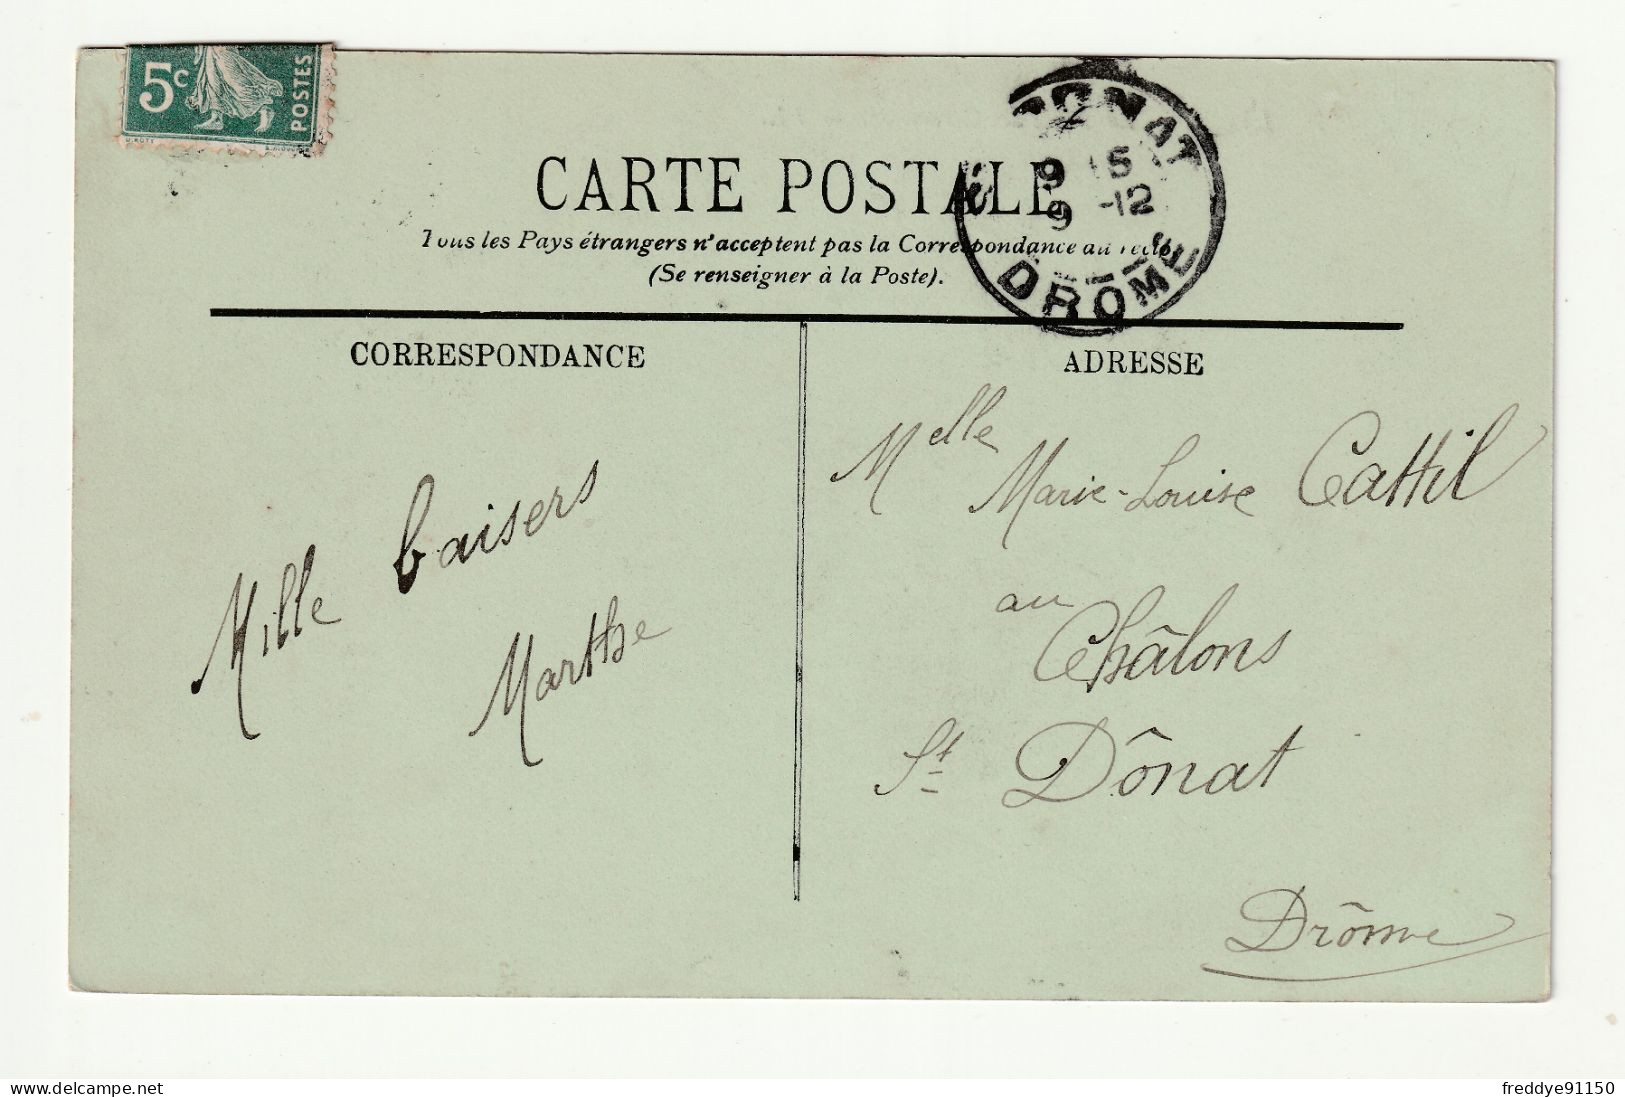 5c
POSTES
CARTE POSTALE
Tous les Pays étrangers n'acceptent pas la Correspondance au recto
(Se renseigner à la Poste).
9 15
9 -12
DROME
CORRESPONDANCE
ADRESSE
Mille baisers
Marthe
Melle Marie-Louise Cattil
au
Châlons
St Dônat
Drôme
www.delcampe.net
freddye91150